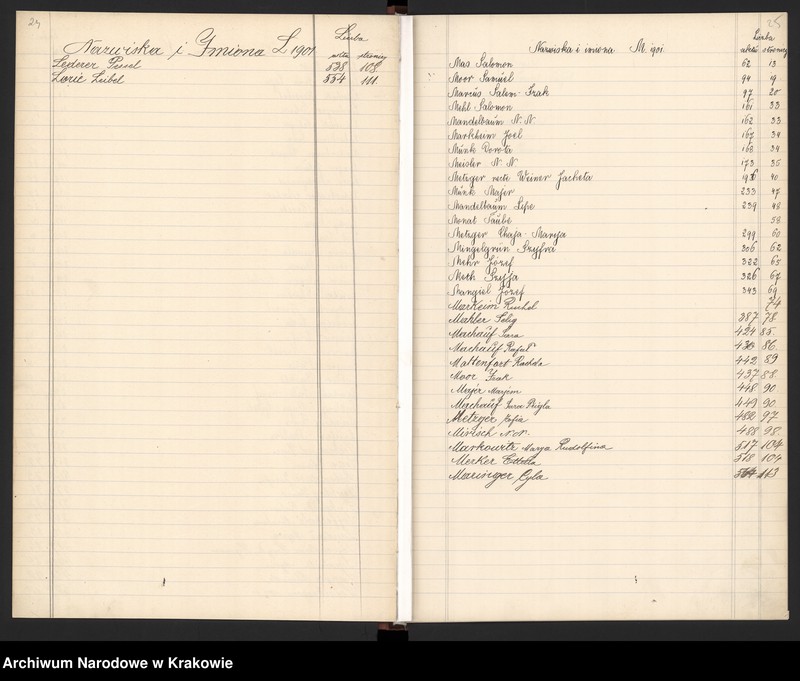 24
Nazwiska i Imiona L 1901
Liczba
aktu strony
Lederer Pesel 538 108
Lorie Leibel 554 111
25
Nazwiska i imiona M. 901
Liczba
aktu strony
Mas Salomon 62 13
Moor Samuel 94 19
Marcus Salem-Izak 97 20
Mehl Salomon 161 33
Mandelbaum N. N. 162 33
Markheim Joel 167 34
Münk Dorota 168 34
Meisler N. N. 173 35
Metzger recte Weiner Jacheta 196 40
Münk Majer 233 47
Mandelbaum Lipe 239 48
Monat Taube 58
Metzger Chaja-Marya 299 60
Mingelgrün Szyfra 306 62
Mehr Józef 322 65
Meth Szyja 326 67
Mangiel Józef 343 69
Markeim Ruchel 74
Mahler Selig 387 78
Machauf Sara 424 85
Machauf Rafał 430 86
Maltenfort Rachla 442 89
Moor Izak 437 88
Majer Marjem 448 90
Machauf Sara Rugla 449 90
Metzger Zofia 482 97
Mirisch N.N. 488 98
Markowitz Marya Rudolfina 517 104
Merker Estella 518 104
Maringer Cyla 564 113
Archiwum Narodowe w Krakowie